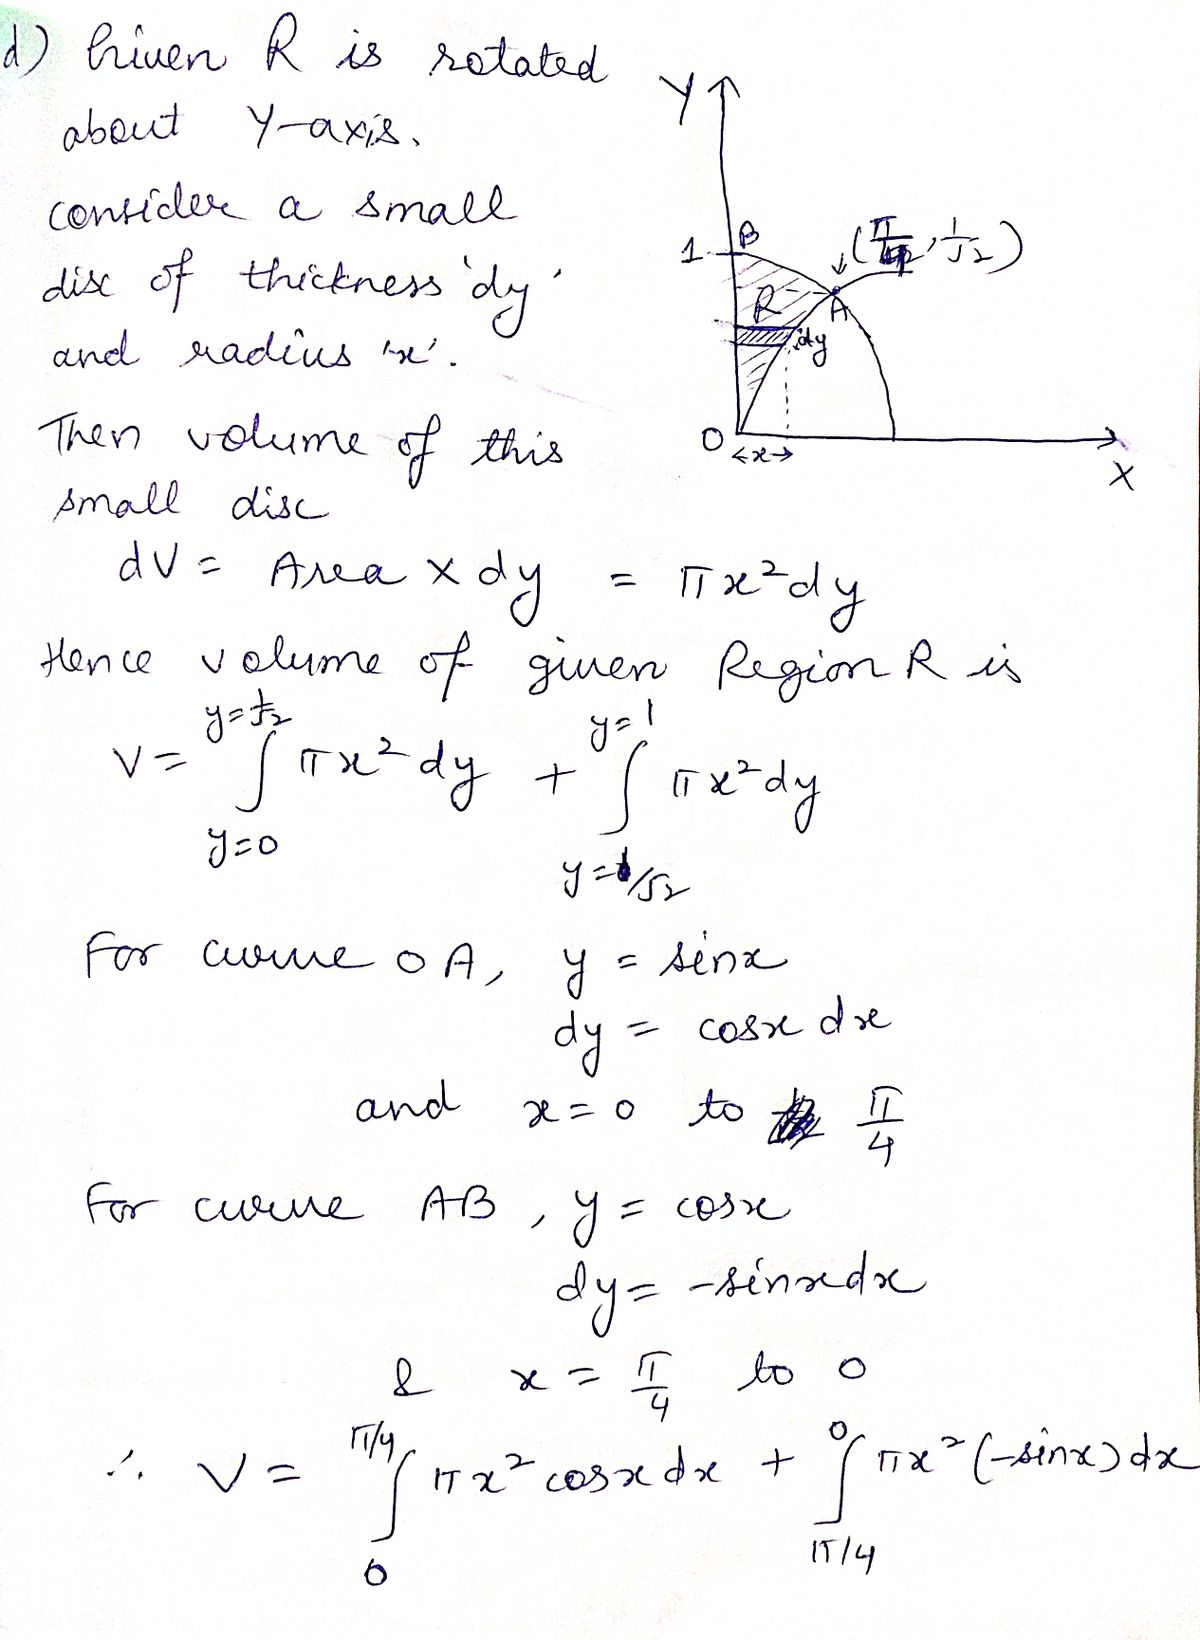 d) Given R is rotated
about Y-axis.
consider a small
disc of thickness 'dy'
and radius 'x'.
Then volume of this
small disc
Y
1
B
(π/4, 1/√2)
R
A
dy
O
←x→
X
dV = Area × dy = πx²dy
Hence volume of given Region R is
V = ∫_{y=0}^{y=1/√2} πx² dy + ∫_{y=1/√2}^{y=1} πx²dy
For curve OA, y = sinx
dy = cosx dx
and x = 0 to π/4
For curve AB, y = cosx
dy = -sinxdx
& x = π/4 to 0
∴ V = ∫_{0}^{π/4} πx² cosx dx + ∫_{π/4}^{0} πx² (-sinx) dx